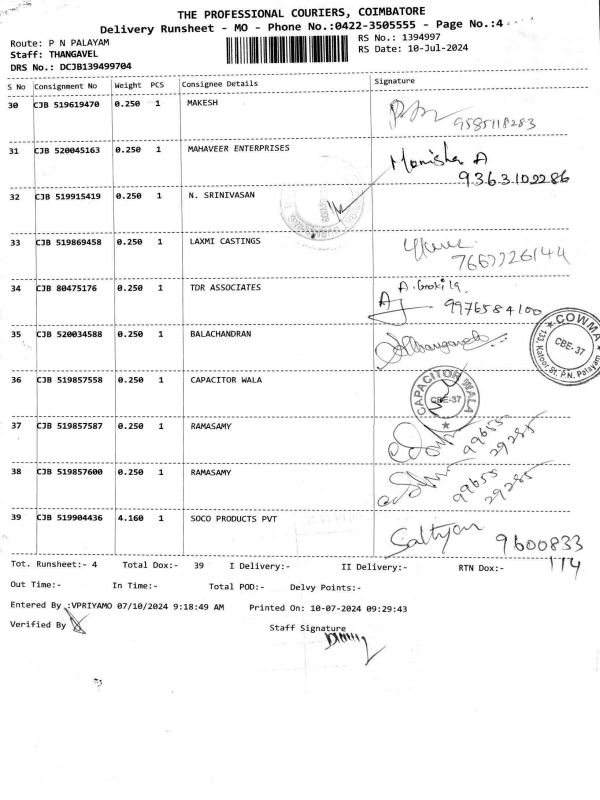 THE PROFESSIONAL COURIERS, COIMBATORE
Delivery Runsheet - MO - Phone No.:0422-3505555 - Page No.:4
Route: P N PALAYAM
RS No.: 1394997
Staff: THANGAVEL
RS Date: 10-Jul-2024
DRS No.: DCJB139499704
S No Consignment No Weight PCS Consignee Details Signature
30 CJB 519619470 0.250 1 MAKESH
9585118283
31 CJB 520045163 0.250 1 MAHAVEER ENTERPRISES Manisha A
9363102286
32 CJB 519915419 0.250 1 N. SRINIVASAN
33 CJB 519869458 0.250 1 LAXMI CASTINGS
34 CJB 80475176 0.250 1 TDR ASSOCIATES
9976584100
35 CJB 520034588 0.250 1 BALACHANDRAN
COWMA
133, Kaloor St. P.N. Palayam
CBE-37
36 CJB 519857558 0.250 1 CAPACITOR WALA
CAPACITOR WALA
CBE-37
37 CJB 519857587 0.250 1 RAMASAMY
99655
29285
38 CJB 519857600 0.250 1 RAMASAMY
99655
29285
39 CJB 519904436 4.160 1 SOCO PRODUCTS PVT
9600833
174
Tot. Runsheet:- 4 Total Dox:- 39 I Delivery:- II Delivery:- RTN Dox:-
Out Time:- In Time:- Total POD:- Delvy Points:-
Entered By :VPRIYAMO 07/10/2024 9:18:49 AM Printed On: 10-07-2024 09:29:43
Verified By
Staff Signature